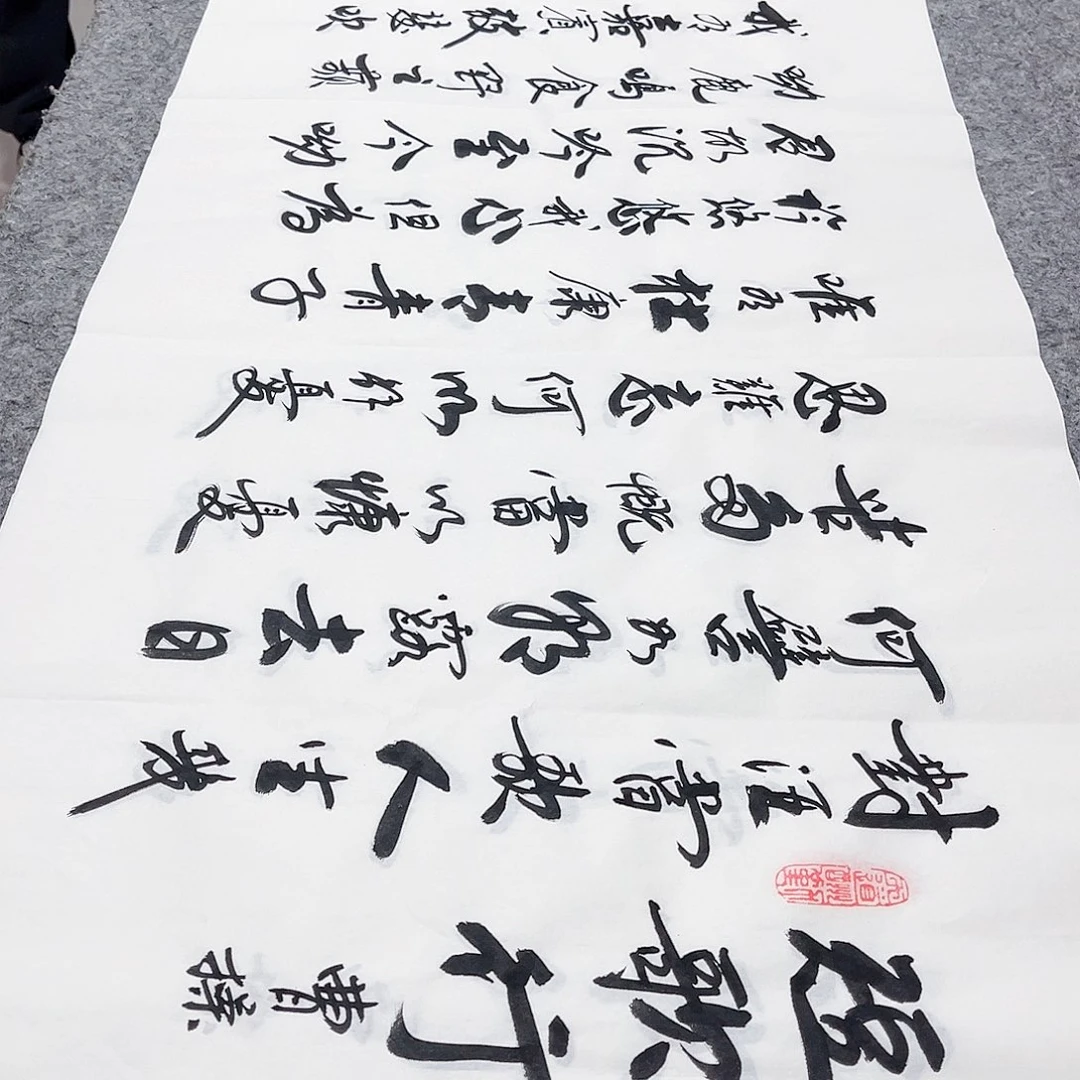 短歌行 曹操
對酒當歌人生幾
何譬如朝露去日
苦多慨當以慷憂
思難忘何以解憂
唯有杜康青青子
衿悠悠我心但為
君故沉吟至今呦
呦鹿鳴食野之蘋
我有嘉賓鼓瑟吹